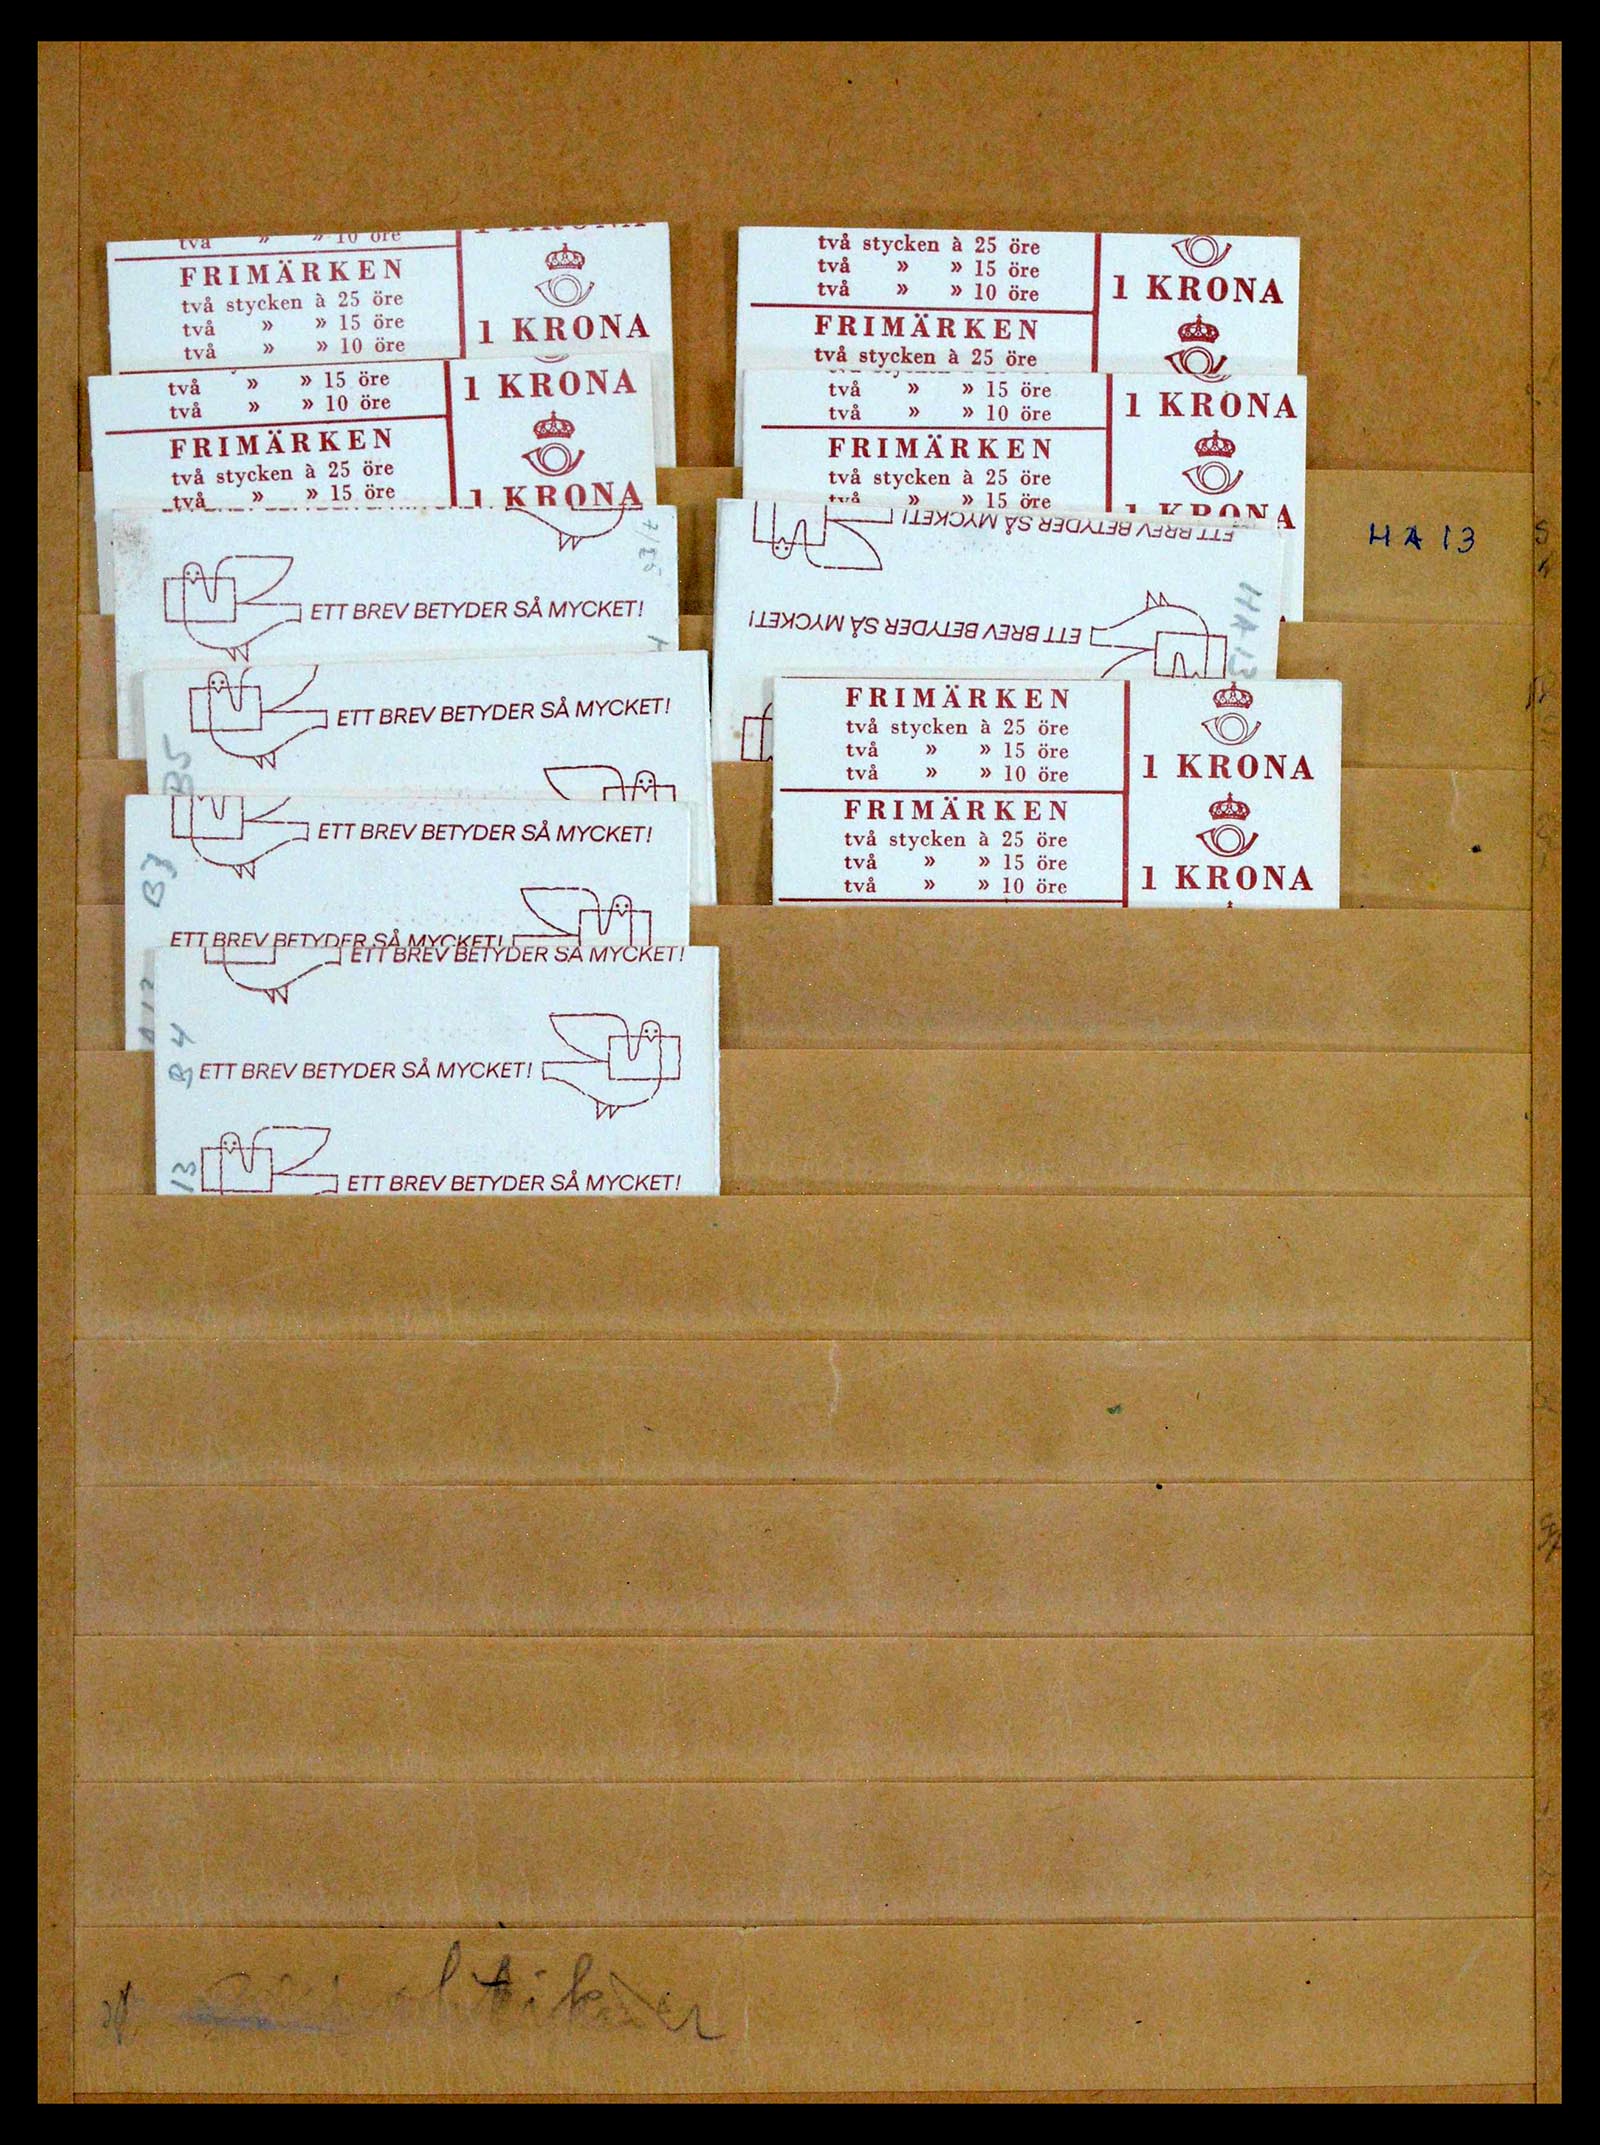 två » » 10 öre
FRIMÄRKEN
två stycken à 25 öre
två » » 15 öre
två » » 10 öre
1 KRONA
1 KRONA
två » » 15 öre
två » » 10 öre
FRIMÄRKEN
två stycken à 25 öre
två » » 15 öre
1 KRONA
1 KRONA
ETT BREV BETYDER SÅ MYCKET!
ETT BREV BETYDER SÅ MYCKET!
B5
ETT BREV BETYDER SÅ MYCKET!
B3
ETT BREV BETYDER SÅ MYCKET!
ETT BREV BETYDER SÅ MYCKET!
B4
ETT BREV BETYDER SÅ MYCKET!
13
ETT BREV BETYDER SÅ MYCKET!
två stycken à 25 öre
två » » 15 öre
två » » 10 öre
FRIMÄRKEN
två stycken à 25 öre
1 KRONA
två » » 15 öre
två » » 10 öre
FRIMÄRKEN
två stycken à 25 öre
två » » 15 öre
1 KRONA
1 KRONA
ETT BREV BETYDER SÅ MYCKET!
ETT BREV BETYDER SÅ MYCKET!
HA 13
HA 13
FRIMÄRKEN
två stycken à 25 öre
två » » 15 öre
två » » 10 öre
1 KRONA
FRIMÄRKEN
två stycken à 25 öre
två » » 15 öre
två » » 10 öre
1 KRONA